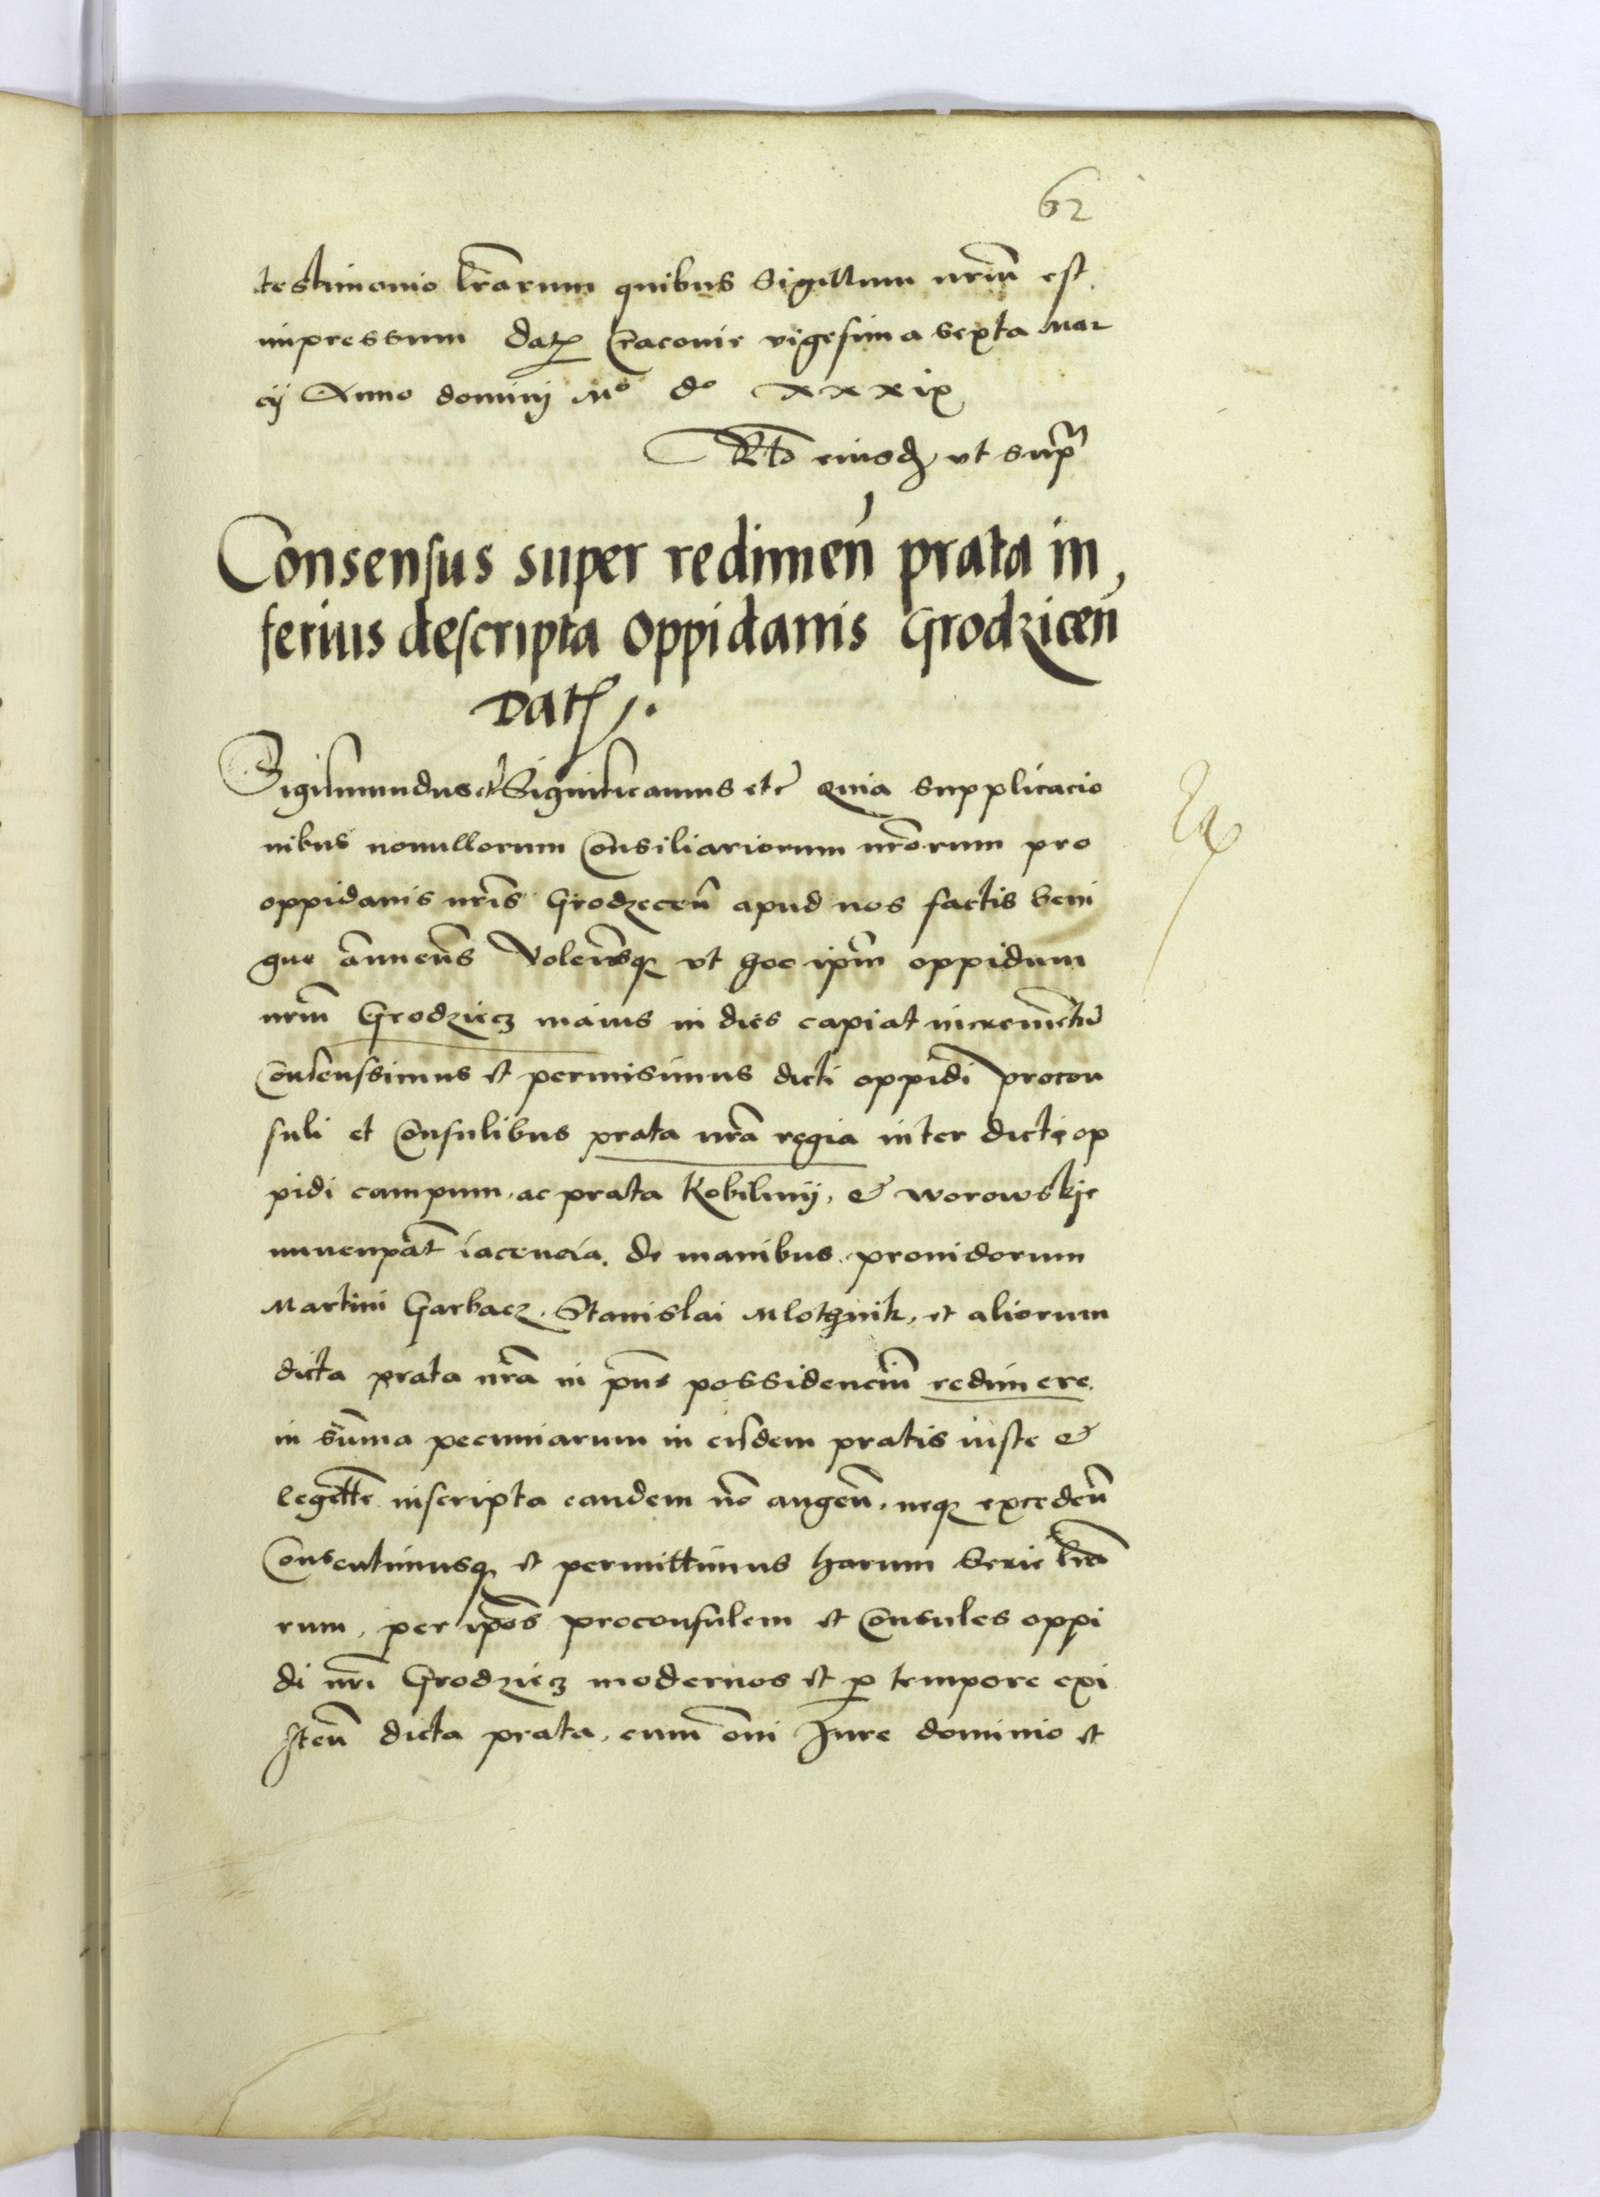 62
testimonio lrarum quibus Sigillum nrum est
impressum Dat Cracovie vigesima sexta Mar
cij Anno dominj Mº dº xxxix
Rtº eiusd vt supra
Consensus super redimen prata in,
ferius descripta oppidanis Grodzicen
Dat.
Sigismundus etc Significamus etc Quia supplicacio
nibus nonullorum Consiliariorum nrorum pro
oppidanis nris Grodzecen apud nos factis beni
gne annuens Volensq vt hoc ipm oppidum
nrm Grodziecz maius in dies capiat incrementu
Consenssimus et permisimus dicti oppidi procon
suli et Consulibus prata nra regia inter dicti op
pidi campum, ac prata Kobilinij, & Worowskje
nuncupat iacencia. de manibus providorum
Martini Garbacz. Stanislai Mlothnik, et aliorum
dicta prata nra in pns possidencium redimere
in suma pecuniarum in eisdem pratis iuste &
legitte inscripta eandem no augen, neq exceden
Consentimusq et permittimus harum Serie lra
rum, per ipos proconsulem et Consules oppi
di nri Grodziecz modernos et p tempore exi
sten dicta prata, cum omi Jure dominio et